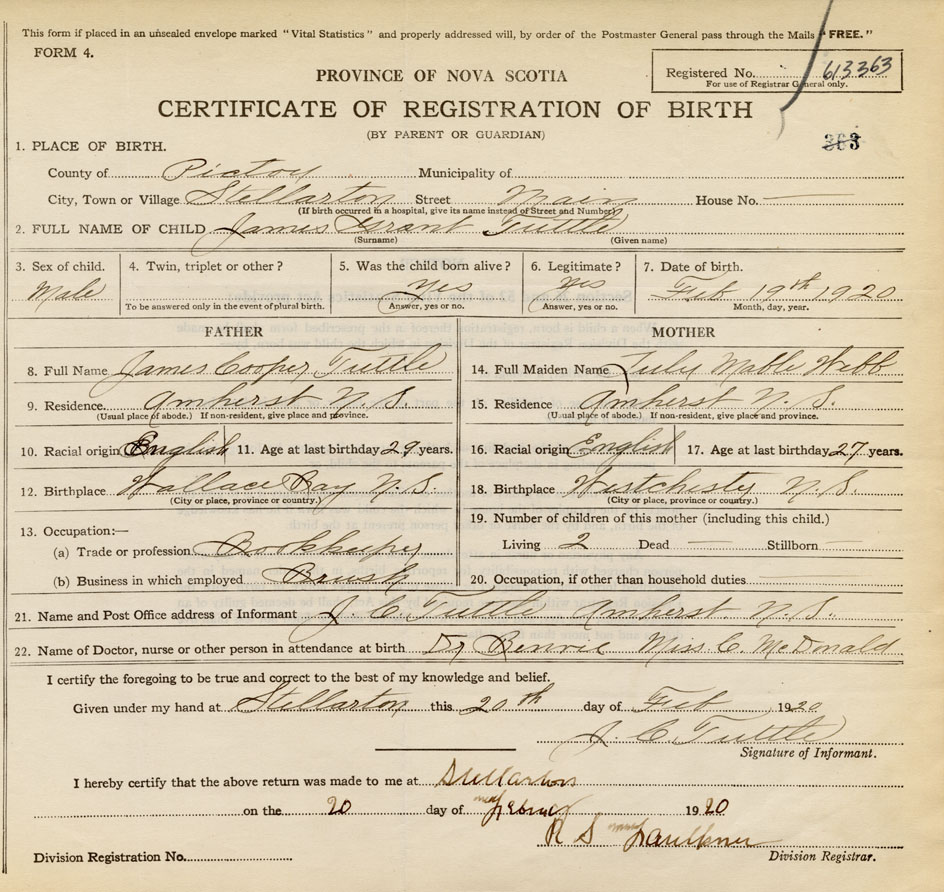 This form if placed in an unsealed envelope marked "Vital Statistics" and properly addressed will, by order of the Postmaster General pass through the Mails "FREE."
FORM 4.
PROVINCE OF NOVA SCOTIA
Registered No. 613363
For use of Registrar General only.
CERTIFICATE OF REGISTRATION OF BIRTH
(BY PARENT OR GUARDIAN)
363 3
1. PLACE OF BIRTH.
County of Pictou Municipality of
City, Town or Village Stellarton Street Main House No. —
(If birth occurred in a hospital, give its name instead of Street and Number)
2. FULL NAME OF CHILD James Grant Tuttle
(Surname) (Given name)
3. Sex of child. 4. Twin, triplet or other? 5. Was the child born alive? 6. Legitimate? 7. Date of birth.
Male Yes Yes Feb 19th 1920
To be answered only in the event of plural birth. Answer, yes or no. Answer, yes or no. Month, day, year.
FATHER MOTHER
8. Full Name James Cooper Tuttle 14. Full Maiden Name July Mable Webb
9. Residence. Amherst N. S. 15. Residence Amherst N. S.
(Usual place of abode.) If non-resident, give place and province. (Usual place of abode.) If non-resident, give place and province.
10. Racial origin English 11. Age at last birthday 29 years. 16. Racial origin English 17. Age at last birthday 27 years.
12. Birthplace Wallace Bay N. S. 18. Birthplace Westchester N. S.
(City or place, province or country.) (City or place, province or country.)
13. Occupation:— 19. Number of children of this mother (including this child.)
(a) Trade or profession Bookkeeper Living 2 Dead — Stillborn —
(b) Business in which employed Brush 20. Occupation, if other than household duties
21. Name and Post Office address of Informant J. C. Tuttle Amherst N. S.
22. Name of Doctor, nurse or other person in attendance at birth Dr Benvie Miss C. McDonald
I certify the foregoing to be true and correct to the best of my knowledge and belief.
Given under my hand at Stellarton this 20th day of Feb 1920
J. C. Tuttle
Signature of Informant.
I hereby certify that the above return was made to me at Stellarton
on the 20 day of 1920
R S Faulkner
Division Registration No. Division Registrar.